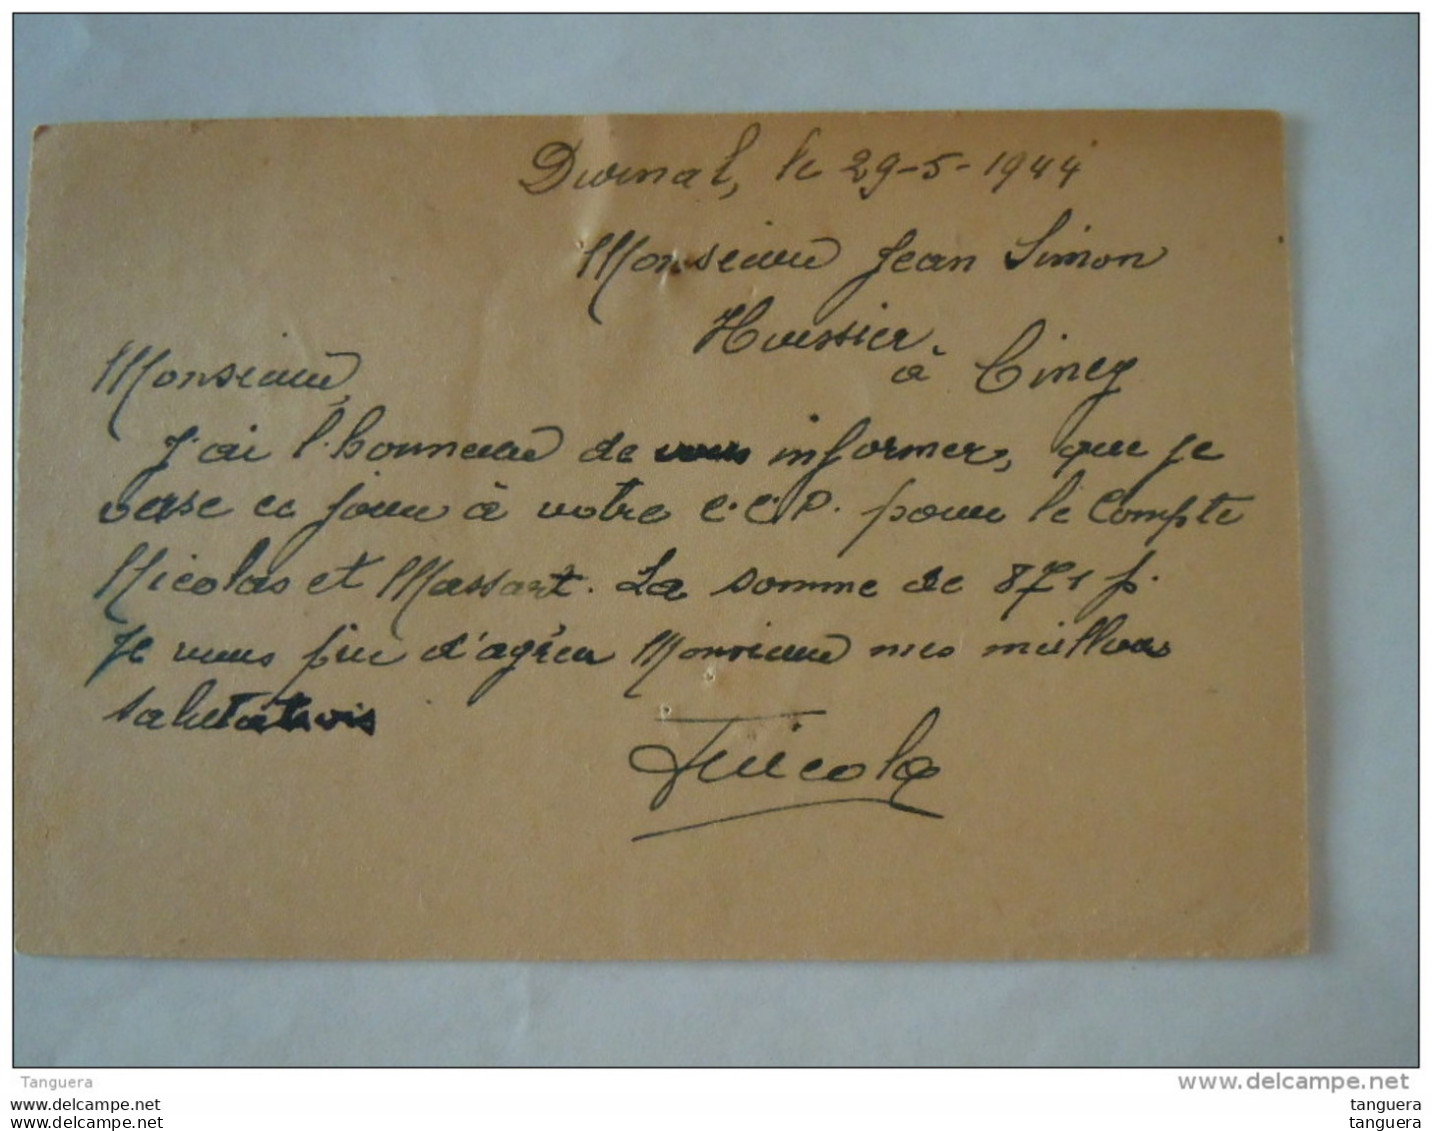 Durnal, le 29-5-1944
Monsieur Jean Simon
Huissier
à Ciney
Monsieur,
J'ai l'honneur de vous informer, que je
verse ce jour à votre C.C.P. pour le Compte
Nicolas et Massart. La somme de 871 f.
Je vous prie d'agréer Monsieur mes meilleurs
salutations
Tanguera
www.delcampe.net
www.delcampe.net
www.delcampe.net
tanguera
tanguera